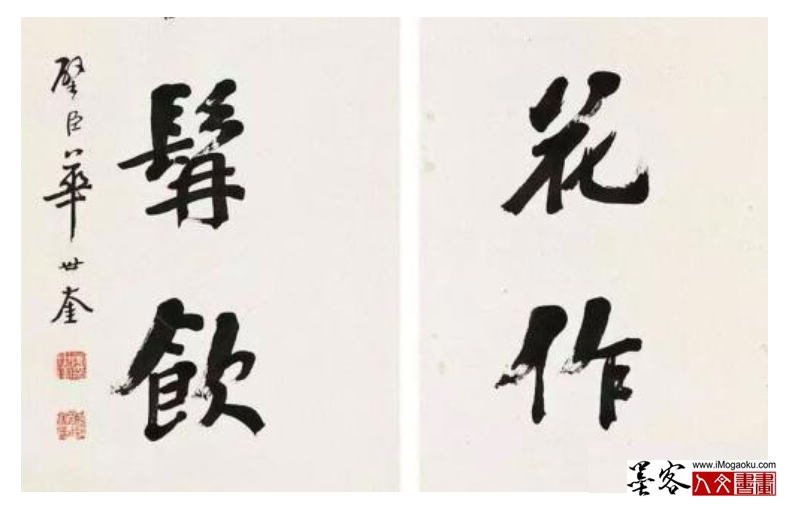 花作
髯飲
璧臣華世奎
www.iMogaoku.com
墨客人文書畫